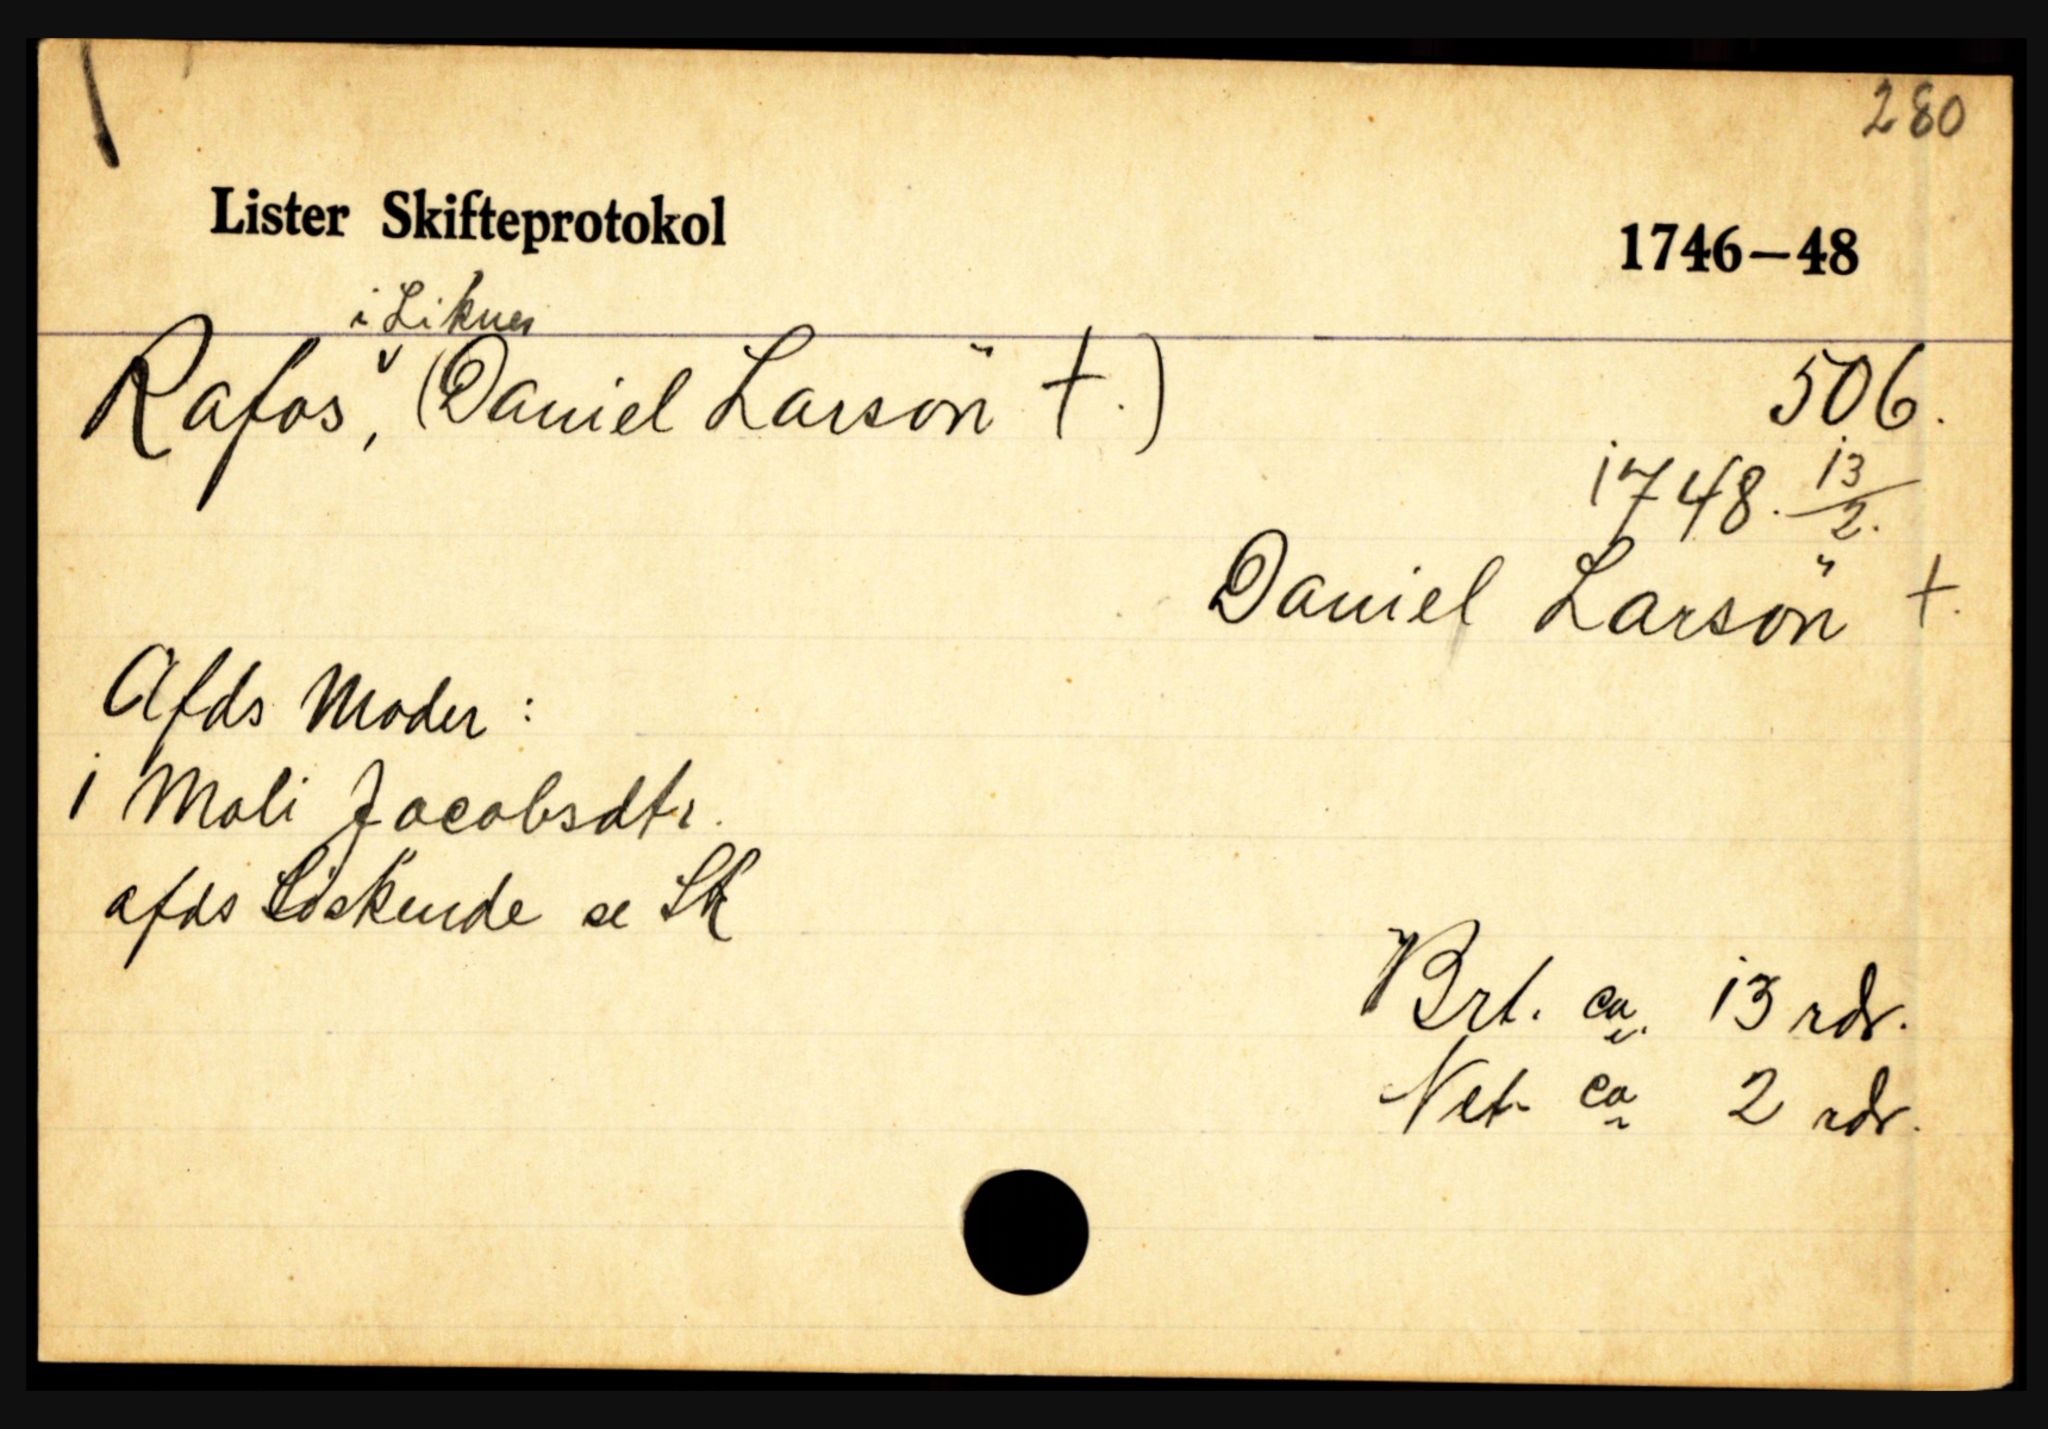 280
Lister Skifteprotokol 1746–48
i Liknes
Rafos, (Daniel Larsön †.) 506.
1748. 13/2.
Daniel Larsön †.
Afds Moder:
1 Mali Jacobsdtr.
afds Söskende se Sk
Brt. ca. 13 rdr.
Net. ca 2 rdr.